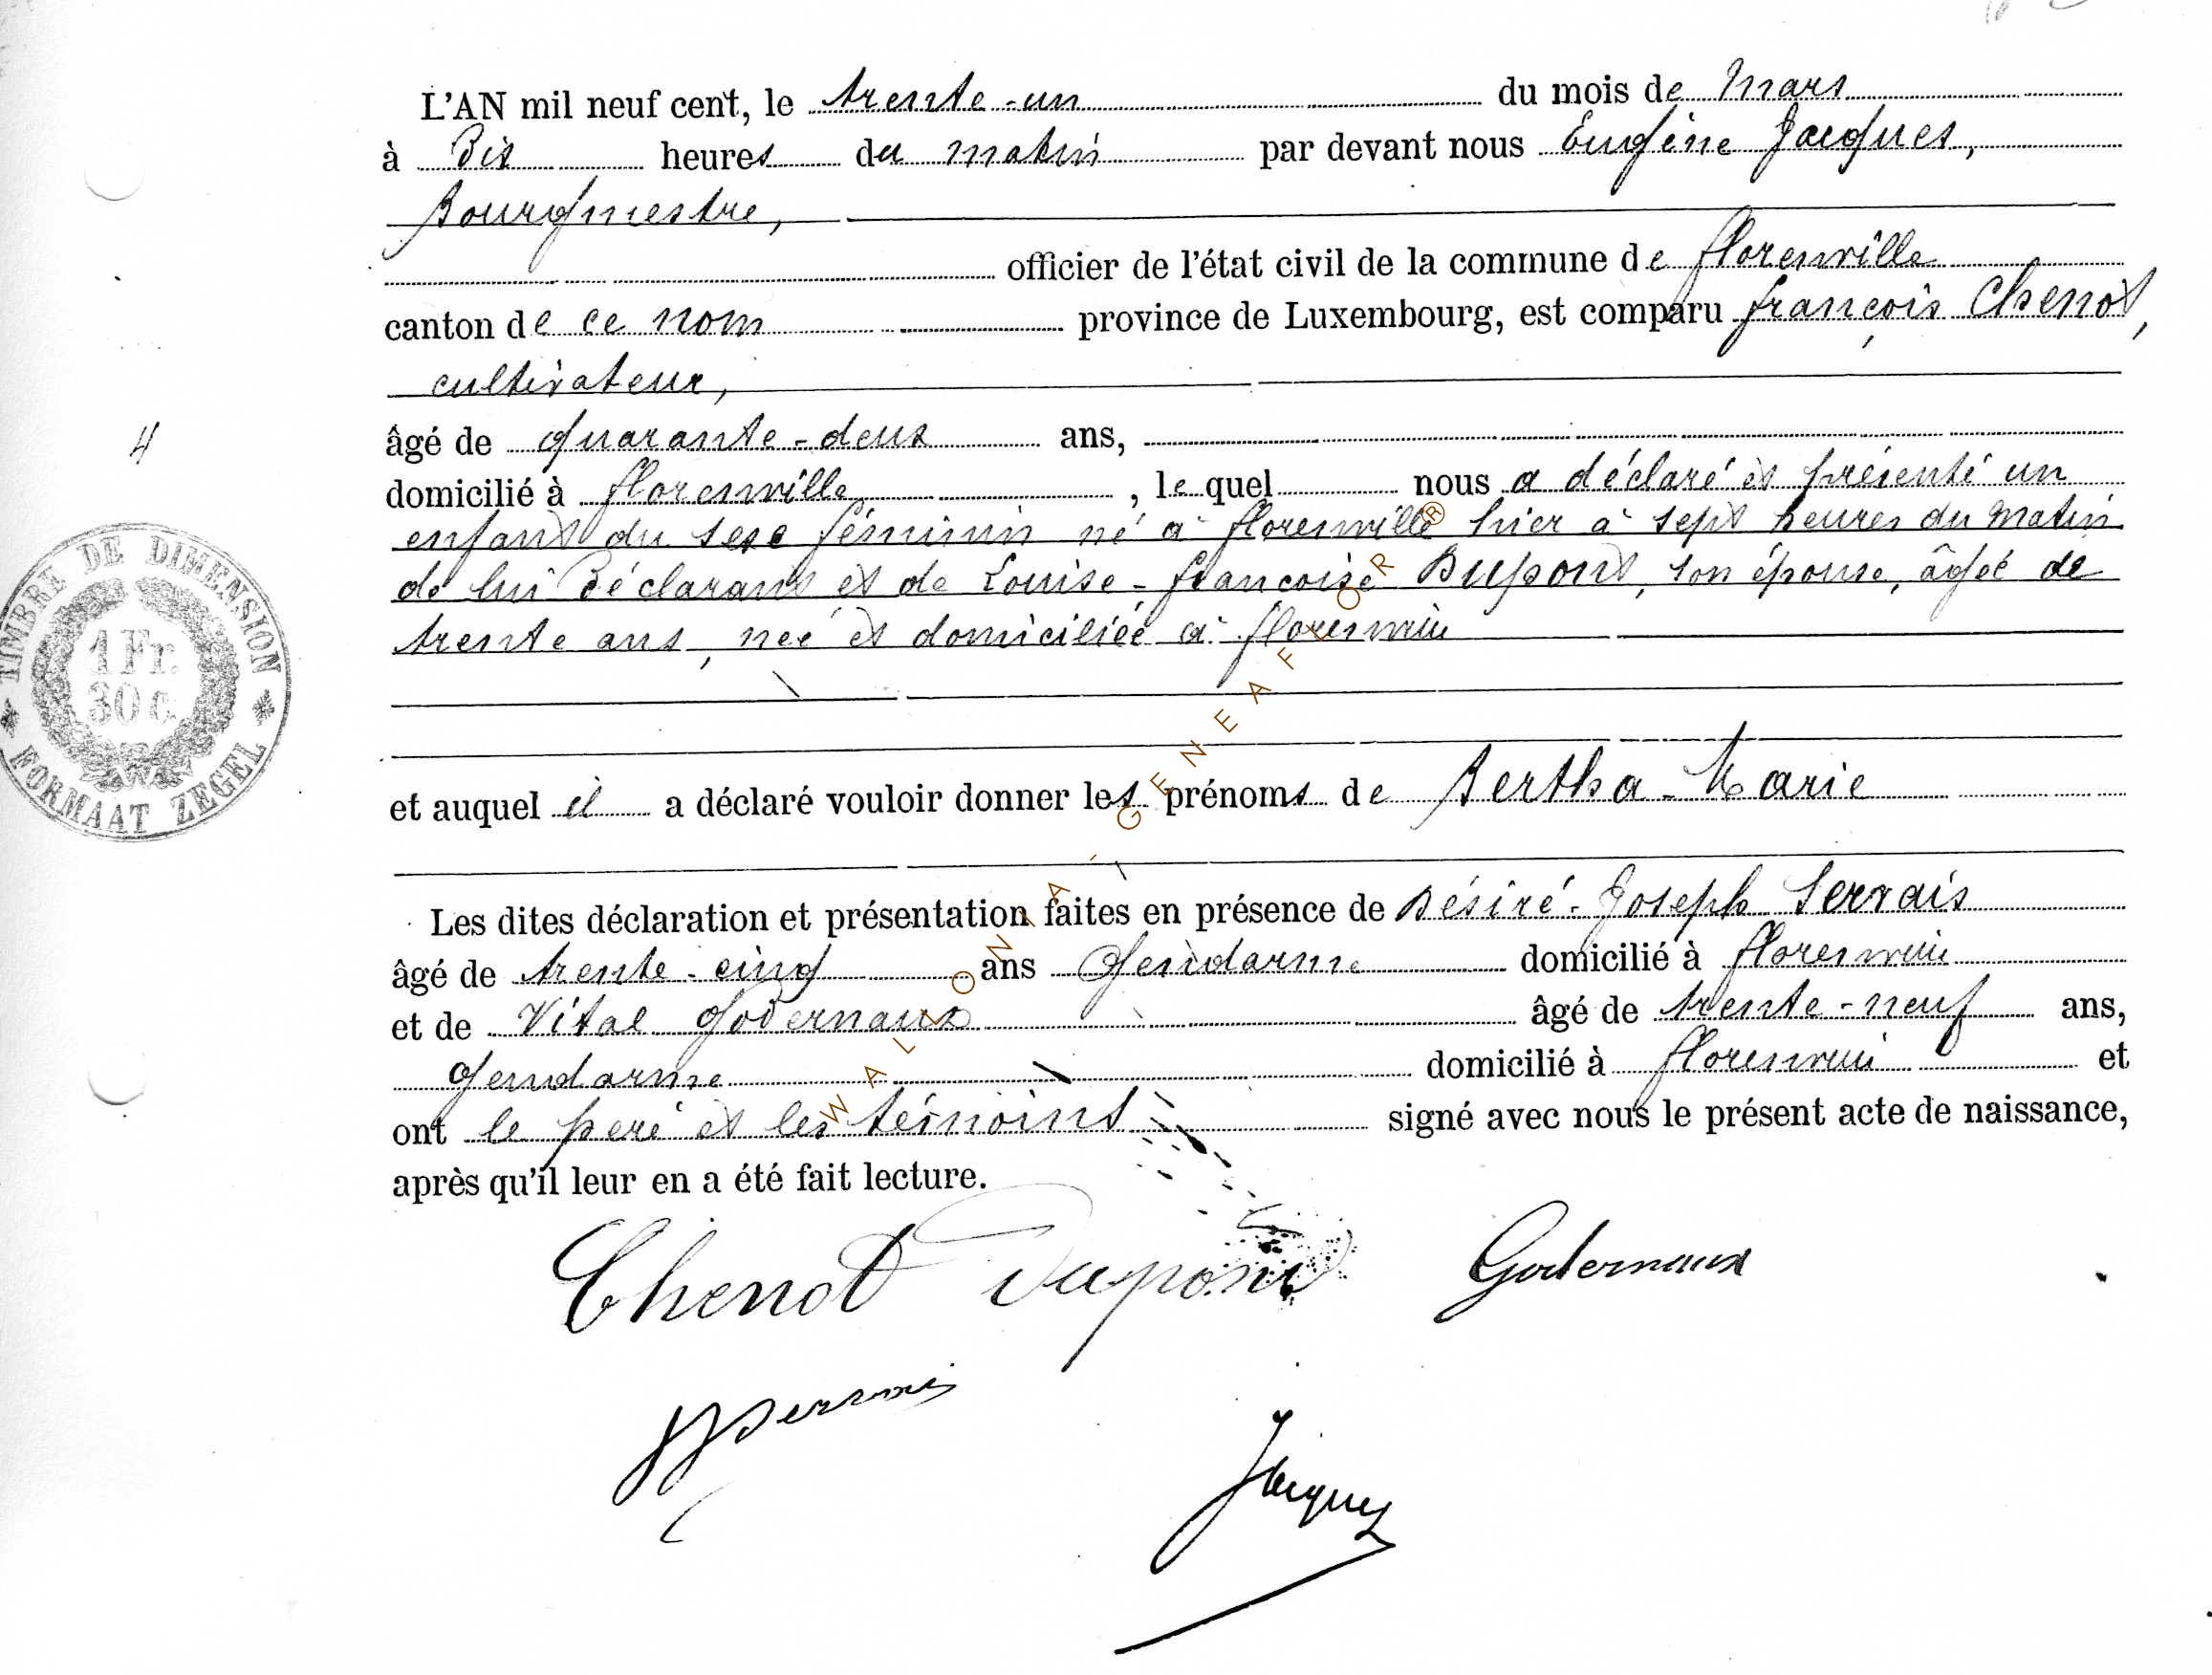 L'AN mil neuf cent, le trente-un du mois de Mars
à Dix heures du matin par devant nous Eugène Jacques,
Bourgmestre,
officier de l'état civil de la commune de florenville
canton de ce nom province de Luxembourg, est comparu françois Chenot,
cultivateur,
âgé de quarante-deux ans,
domicilié à florenville, le quel nous a déclaré et présenté un
enfant du sexe féminin né à florenville hier à sept heures du matin
de lui Déclarant et de Louise-françoise Dupont, son épouse, âgée de
trente ans, née et domiciliée à florenville
et auquel il a déclaré vouloir donner les prénoms de Bertha-Marie
Les dites déclaration et présentation faites en présence de Désiré-Joseph Servais
âgé de trente-cinq ans Gendarme domicilié à florenville
et de Vital Godernaux âgé de trente-neuf ans,
Gendarme domicilié à florenville et
ont le père et les témoins signé avec nous le présent acte de naissance,
après qu'il leur en a été fait lecture.
Chenot Dupont Godernaux
Servais
Jacques
4
TIMBRE DE DIMENSION
1 Fr.
30 c.
FORMAAT ZEGEL
WALLONIA - GENEAFLOR ®